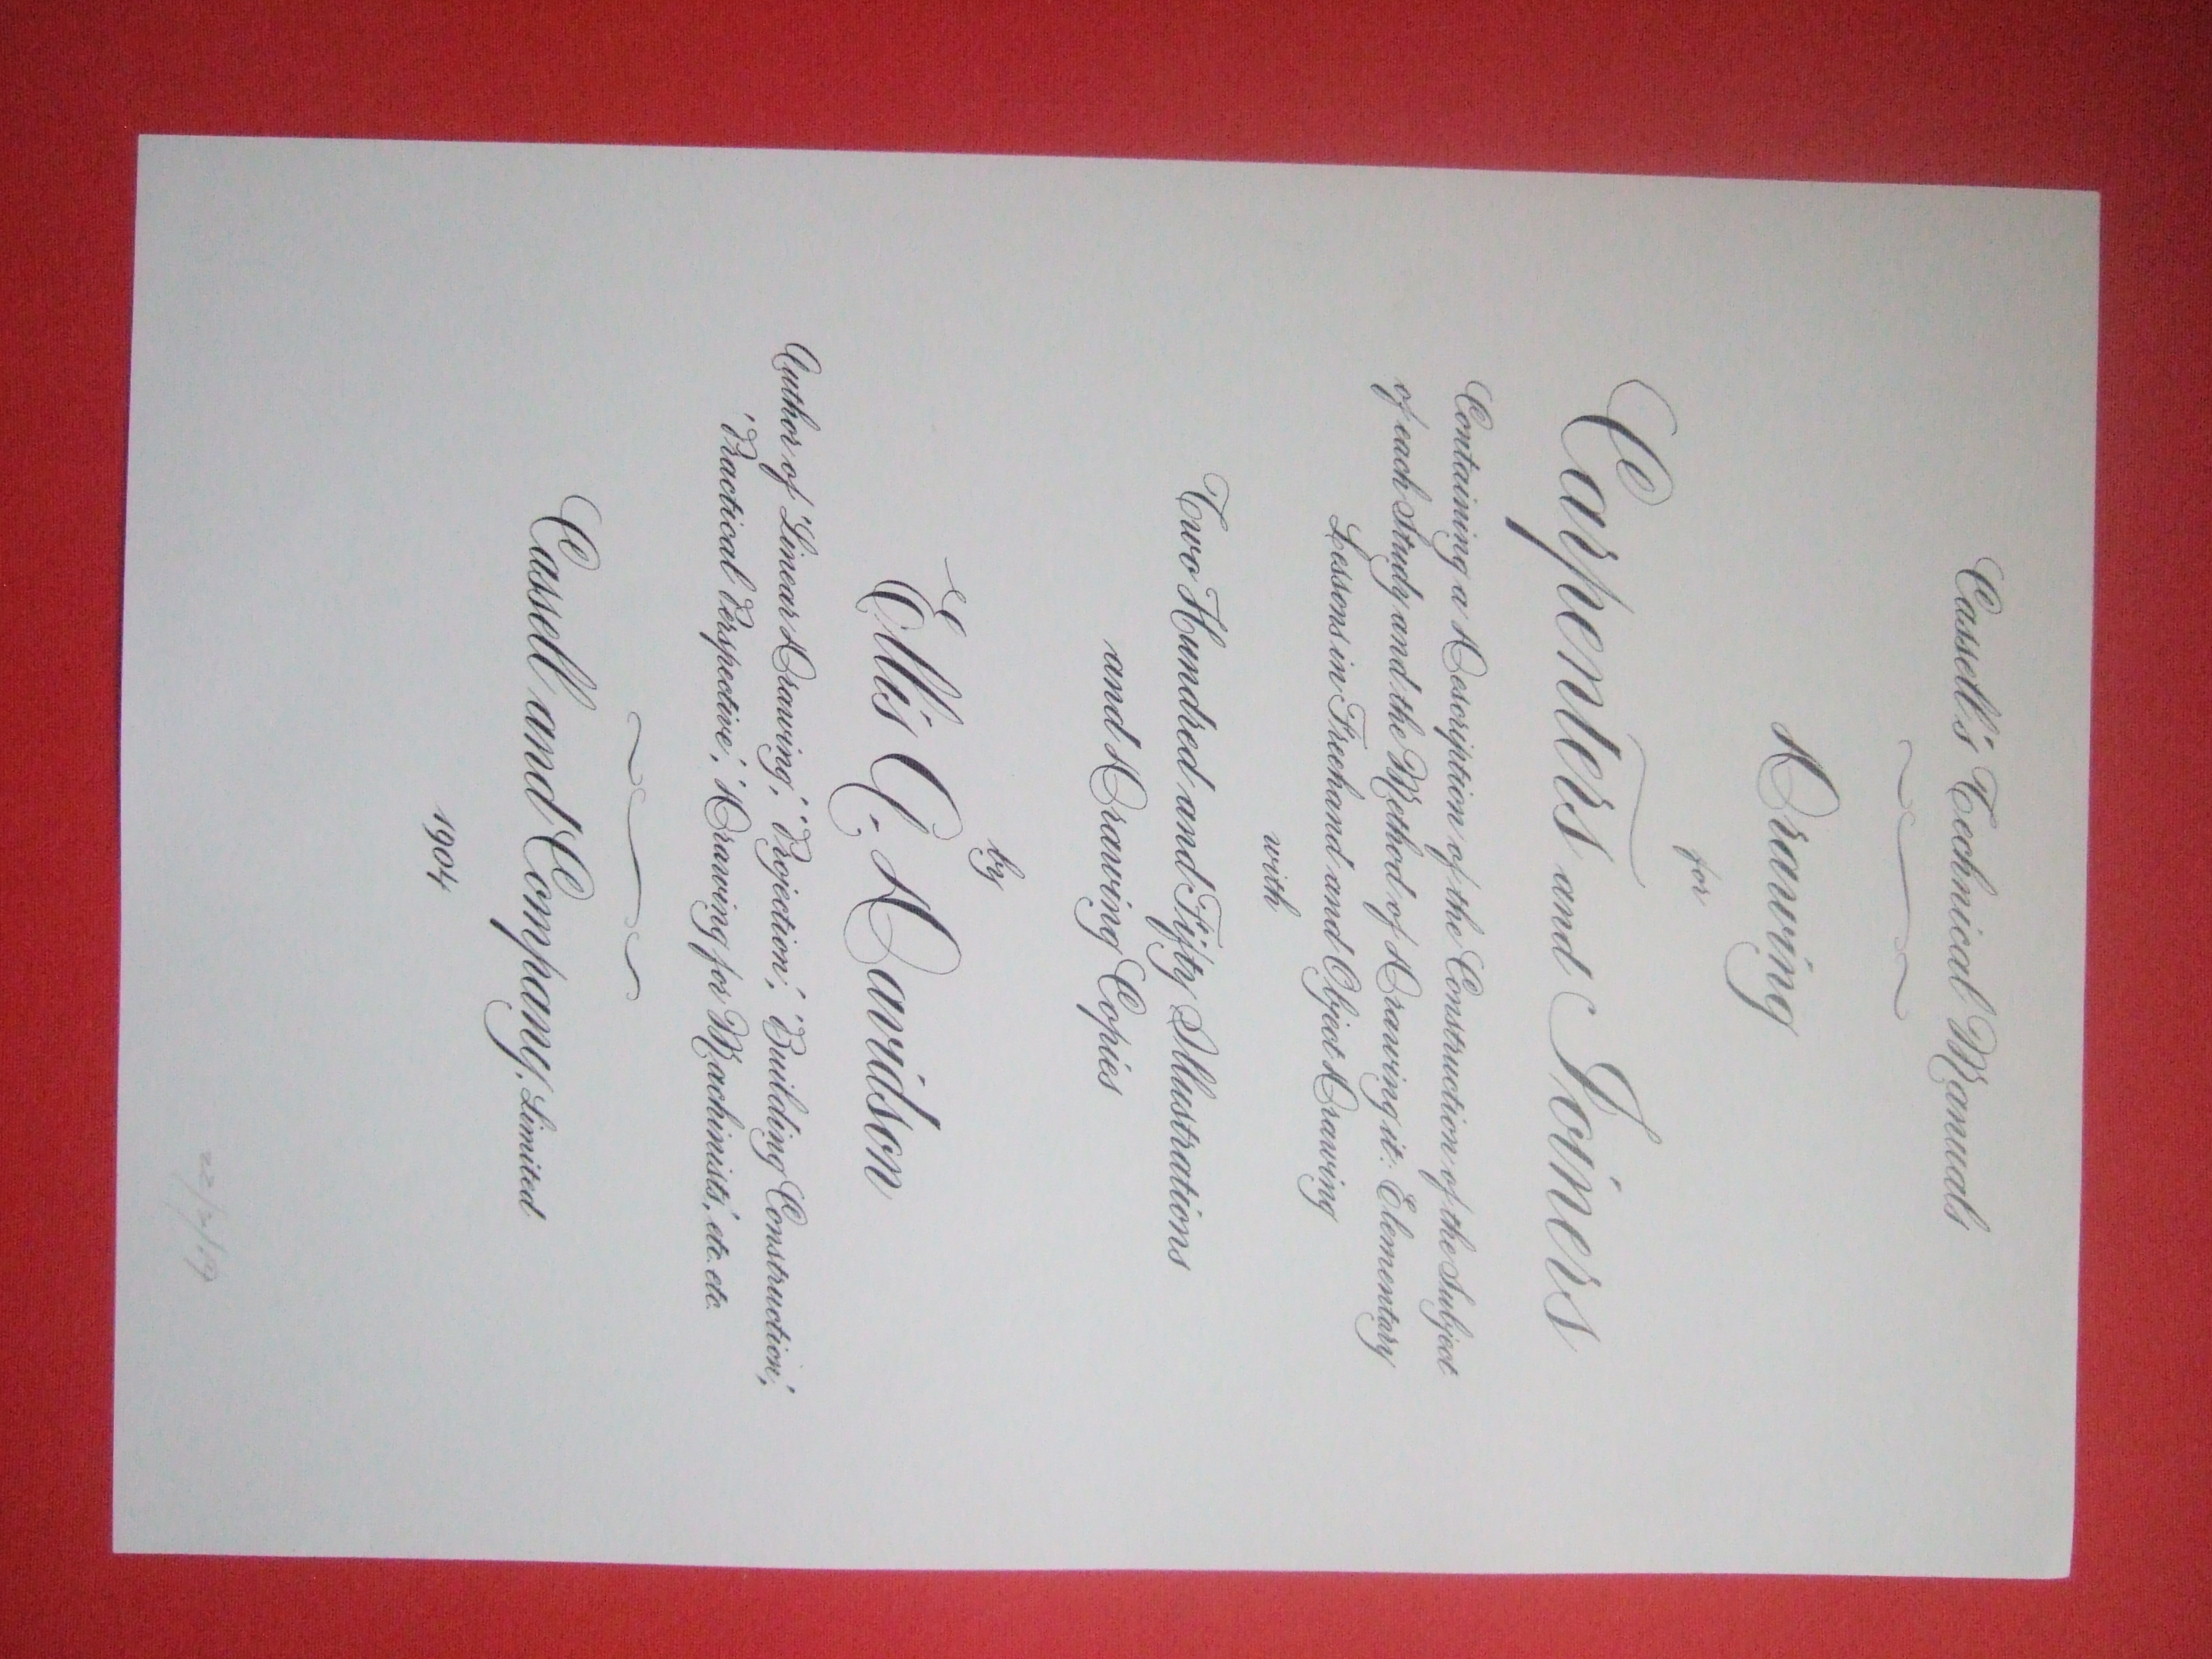 Cassell's Technical Manuals
Drawing
for
Carpenters and Joiners
Containing a Description of the Construction of the Subject
of each Study and the Method of Drawing it: Elementary
Lessons in Freehand and Object Drawing
with
Two Hundred and Fifty Illustrations
and Drawing Copies
by
Ellis A. Davidson
Author of 'Linear Drawing,' 'Projection,' 'Building Construction,'
'Practical Perspective,' 'Drawing for Machinists,' etc. etc.
Cassell and Company, Limited
1904